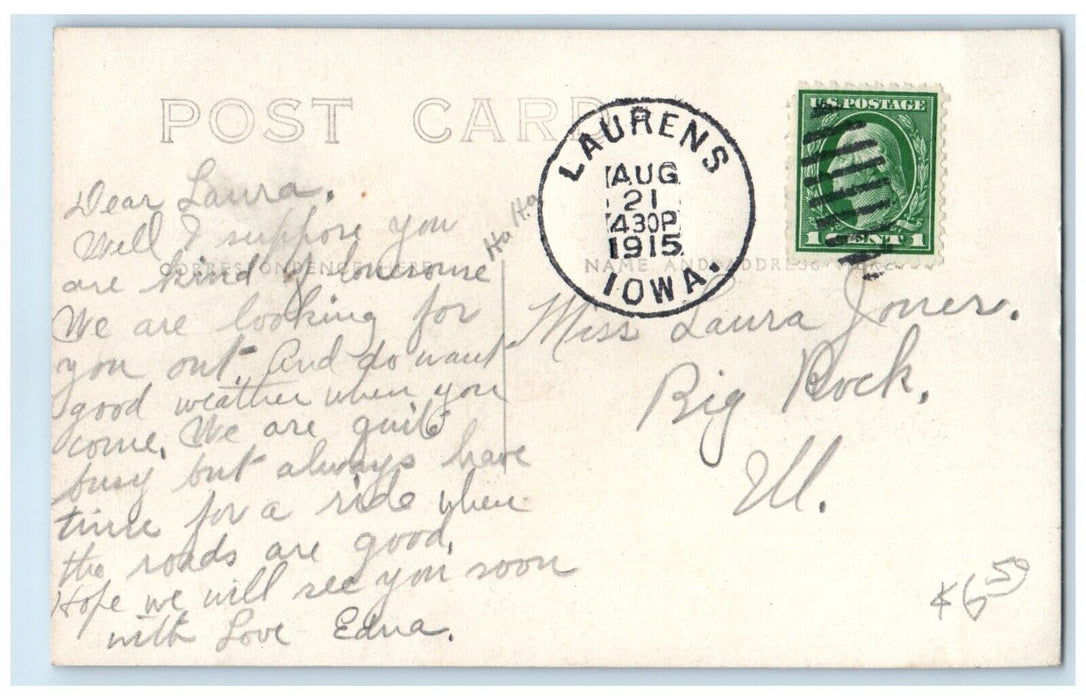 POST CARD
LAURENS
AUG
21
430P
1915
IOWA.
U.S. POSTAGE
1 CENT 1
CORRESPONDENCE HERE
NAME AND ADDRESS HERE
Dear Laura.
Well I suppose you
are kind of lonesome Ha Ha
We are looking for
you out. And do want
good weather when you
come. We are quite
busy but always have
time for a ride when
the roads are good.
Hope we will see you soon
with Love Edna.
Miss Laura Jones.
Big Rock.
Ill.
$6 50